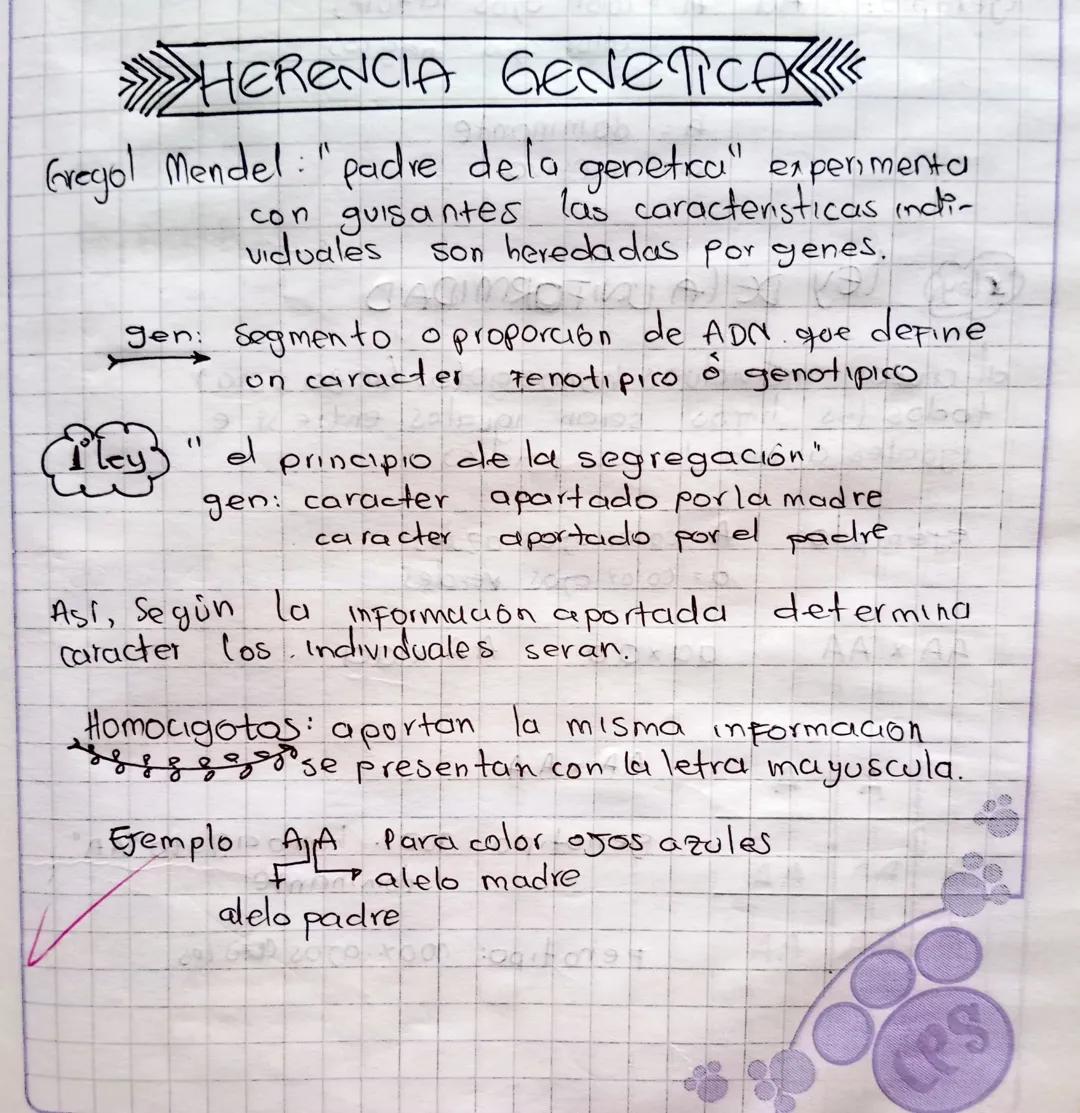 HERENCIA GENETICA
Gregol Mendel: "padre de la genetica" experimenta
con guisantes las caracteristicas indi-
viduales son heredadas por genes.
gen: Segmento o proporción de ADN. que define
un caracter fenotipico ó genotipico
1° ley " el principio de la segregación"
gen: caracter apartado por la madre
caracter aportado por el padre
Así, Según la información aportada determina
caracter los individuales seran.
Homocigotos: aportan la misma informacion
se presentan con la letra mayuscula.
Ejemplo AA para color ojos azules
alelo madre
alelo padre
CPS